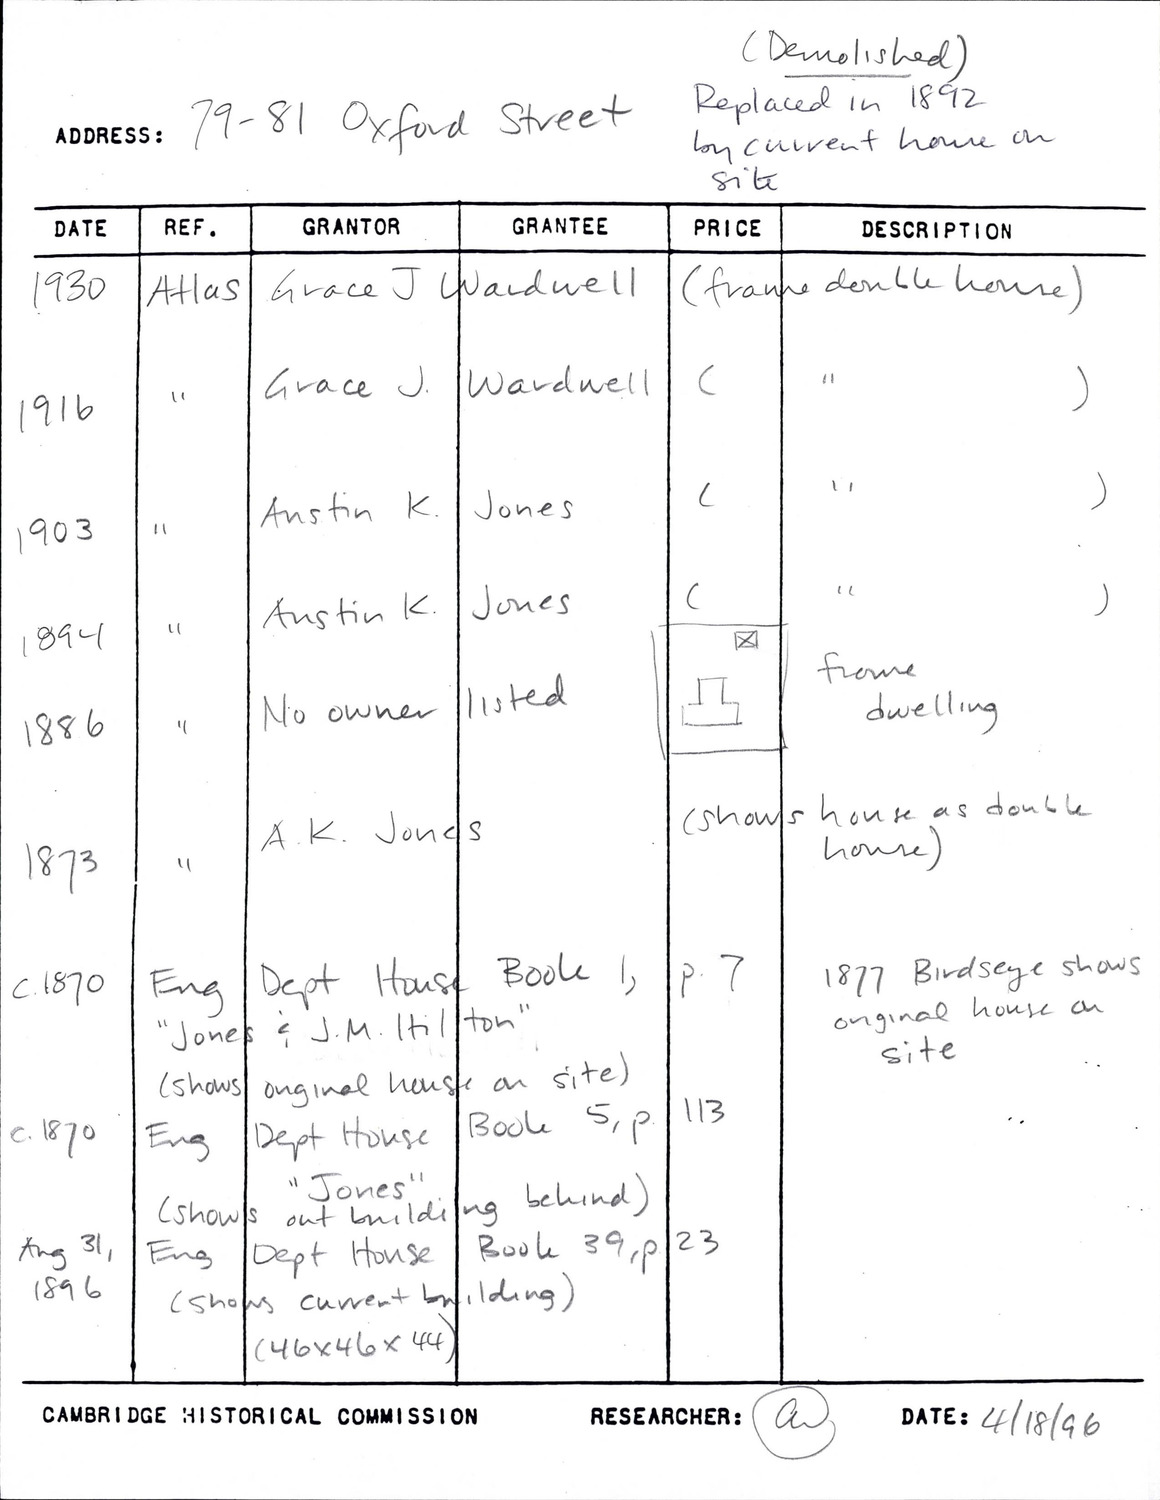 (Demolished)
Replaced in 1892
by current house on
site
ADDRESS: 79-81 Oxford Street
DATE REF. GRANTOR GRANTEE PRICE DESCRIPTION
1930 Atlas Grace J Wardwell (frame double house)
1916 " Grace J. Wardwell ( " )
1903 " Austin K. Jones ( " )
1894 " Austin K. Jones ( " )
1886 " No owner listed frame
dwelling
1873 " A.K. Jones (shows house as double
house)
c.1870 Eng Dept House Book 1, p. 7 1877 Birdseye shows
"Jones & J.M. Hilton" original house on
site
(shows original house on site)
c.1870 Eng Dept House Book 5, p. 113
"Jones"
(shows out building behind)
Aug 31, Eng Dept House Book 39, p 23
1896 (shows current building)
(46x46x44)
CAMBRIDGE HISTORICAL COMMISSION RESEARCHER: DATE: 4/18/96